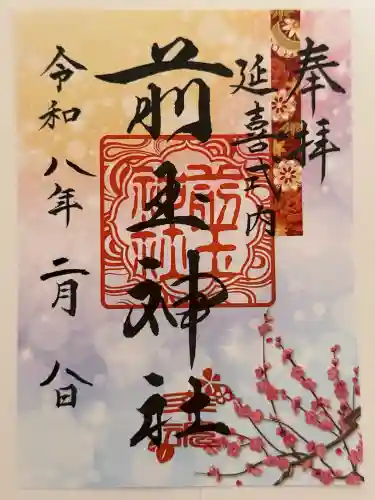 奉拝
延喜式内
前玉神社
前玉神社
令和八年 二月 八日